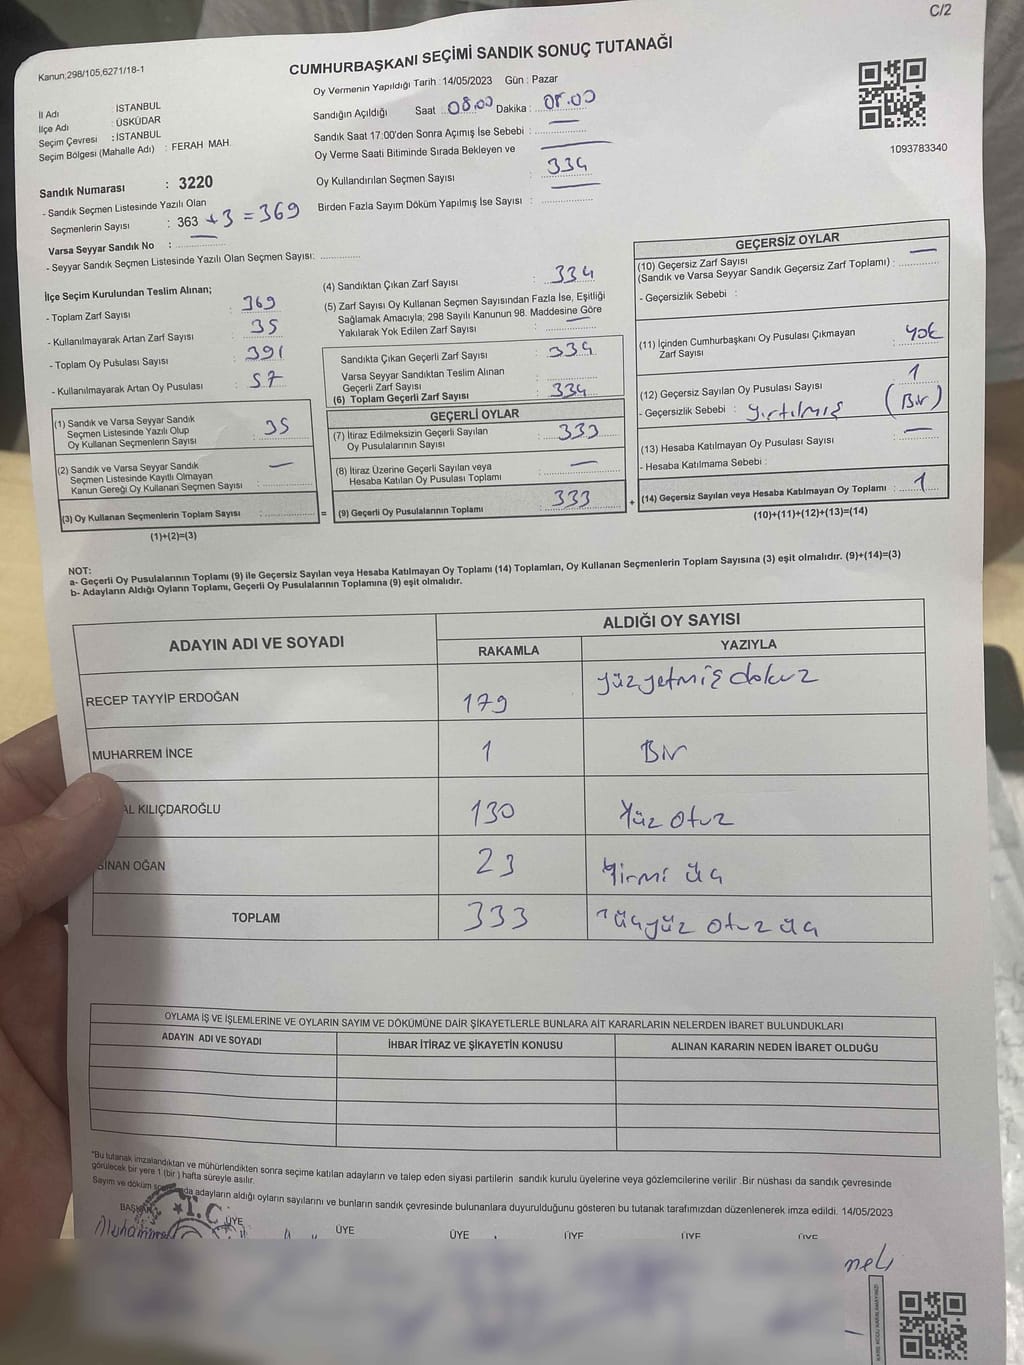 C/2
Kanun,298/105,6271/18-1
CUMHURBAŞKANI SEÇİMİ SANDIK SONUÇ TUTANAĞI
Oy Vermenin Yapıldığı Tarih : 14/05/2023 Gün : Pazar
İl Adı : İSTANBUL
İlçe Adı : ÜSKÜDAR
Seçim Çevresi : İSTANBUL
Seçim Bölgesi (Mahalle Adı) : FERAH MAH.
Sandığın Açıldığı Saat : 08.00 Dakika : 08.00
Sandık Saat 17:00'den Sonra Açımış İse Sebebi :
Oy Verme Saati Bitiminde Sırada Bekleyen ve
Oy Kullandırılan Seçmen Sayısı : 334
Birden Fazla Sayım Döküm Yapılmış İse Sayısı :
1093783340
Sandık Numarası : 3220
- Sandık Seçmen Listesinde Yazılı Olan
Seçmenlerin Sayısı : 363 +3 = 369
Varsa Seyyar Sandık No :
- Seyyar Sandık Seçmen Listesinde Yazılı Olan Seçmen Sayısı:
İlçe Seçim Kurulundan Teslim Alınan;
- Toplam Zarf Sayısı : 369
- Kullanılmayarak Artan Zarf Sayısı : 35
- Toplam Oy Pusulası Sayısı : 391
- Kullanılmayarak Artan Oy Pusulası : 57
(1) Sandık ve Varsa Seyyar Sandık
Seçmen Listesinde Yazılı Olup
Oy Kullanan Seçmenlerin Sayısı : 35
(2) Sandık ve Varsa Seyyar Sandık
Seçmen Listesinde Kayıtlı Olmayan
Kanun Gereği Oy Kullanan Seçmen Sayısı : —
(3) Oy Kullanan Seçmenlerin Toplam Sayısı : =
(1)+(2)=(3)
(4) Sandıktan Çıkan Zarf Sayısı : 334
(5) Zarf Sayısı Oy Kullanan Seçmen Sayısından Fazla İse, Eşitliği
Sağlamak Amacıyla; 298 Sayılı Kanunun 98. Maddesine Göre
Yakılarak Yok Edilen Zarf Sayısı : —
Sandıkta Çıkan Geçerli Zarf Sayısı : 334
Varsa Seyyar Sandıktan Teslim Alınan
Geçerli Zarf Sayısı :
(6) Toplam Geçerli Zarf Sayısı : 334
GEÇERLİ OYLAR
(7) İtiraz Edilmeksizin Geçerli Sayılan
Oy Pusulalarının Sayısı : 333
(8) İtiraz Üzerine Geçerli Sayılan veya
Hesaba Katılan Oy Pusulası Toplamı : —
(9) Geçerli Oy Pusulalarının Toplamı : 333 +
GEÇERSİZ OYLAR
(10) Geçersiz Zarf Sayısı
(Sandık ve Varsa Seyyar Sandık Geçersiz Zarf Toplamı) : —
- Geçersizlik Sebebi :
(11) İçinden Cumhurbaşkanı Oy Pusulası Çıkmayan
Zarf Sayısı : yok
(12) Geçersiz Sayılan Oy Pusulası Sayısı : 1
- Geçersizlik Sebebi : yırtılmış (Bir)
(13) Hesaba Katılmayan Oy Pusulası Sayısı : —
- Hesaba Katılmama Sebebi :
(14) Geçersiz Sayılan veya Hesaba Katılmayan Oy Toplamı : 1
(10)+(11)+(12)+(13)=(14)
NOT:
a- Geçerli Oy Pusulalarının Toplamı (9) ile Geçersiz Sayılan veya Hesaba Katılmayan Oy Toplamı (14) Toplamları, Oy Kullanan Seçmenlerin Toplam Sayısına (3) eşit olmalıdır. (9)+(14)=(3)
b- Adayların Aldığı Oyların Toplamı, Geçerli Oy Pusulalarının Toplamına (9) eşit olmalıdır.
ADAYIN ADI VE SOYADI ALDIĞI OY SAYISI
RAKAMLA YAZIYLA
RECEP TAYYİP ERDOĞAN 179 yüzyetmiş dokuz
MUHARREM İNCE 1 Bir
AL KILIÇDAROĞLU 130 Yüz otuz
SİNAN OĞAN 23 Yirmi üç
TOPLAM 333 üçyüz otuz üç
OYLAMA İŞ VE İŞLEMLERİNE VE OYLARIN SAYIM VE DÖKÜMÜNE DAİR ŞİKAYETLERLE BUNLARA AİT KARARLARIN NELERDEN İBARET BULUNDUKLARI
ADAYIN ADI VE SOYADI İHBAR İTİRAZ VE ŞİKAYETİN KONUSU ALINAN KARARIN NEDEN İBARET OLDUĞU
*Bu tutanak imzalandıktan ve mühürlendikten sonra seçime katılan adayların ve talep eden siyasi partilerin sandık kurulu üyelerine veya gözlemcilerine verilir .Bir nüshası da sandık çevresinde
görülecek bir yere 1 (bir ) hafta süreyle asılır.
Sayım ve döküm adayların aldığı oyların sayılarını ve bunların sandık çevresinde bulunanlara duyurulduğunu gösteren bu tutanak tarafımızdan düzenlenerek imza edildi. 14/05/2023
BAŞKAN ÜYE ÜYE ÜYE ÜYE ÜYE ÜYE
T.C.